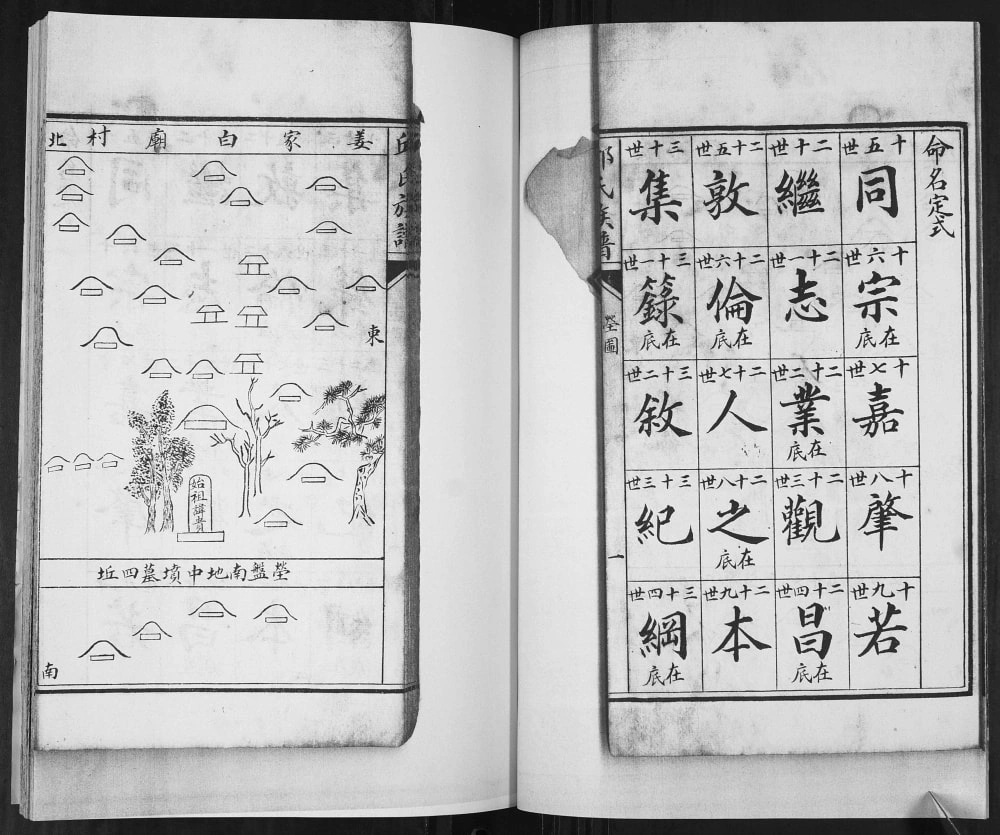 命名定式
十五世
同
十六世
宗
在底
十七世
嘉
十八世
肇
十九世
若
二十世
繼
二十一世
志
二十二世
業
在底
二十三世
觀
二十四世
昌
在底
二十五世
敦
二十六世
倫
在底
二十七世
人
二十八世
之
在底
二十九世
本
三十世
集
三十一世
籙
在底
三十二世
敘
三十三世
紀
三十四世
綱
在底
氏族譜
塋圖
一
邱氏族譜
姜家白廟村北
東
始祖諱貴
塋盤南地中墳墓四坵
南